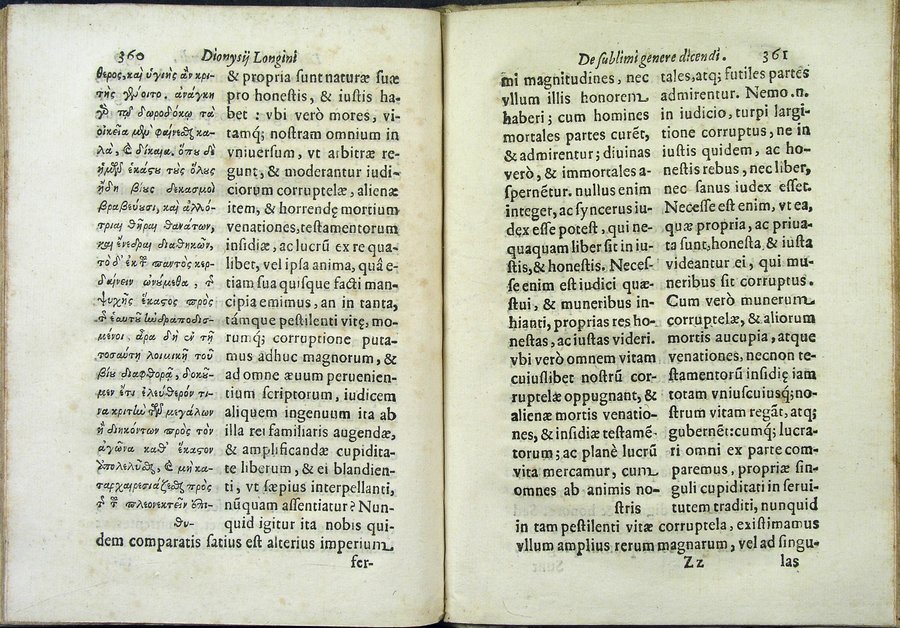 360 Dionysij Longini
θερος, καὶ ὑγιὴς ἂν κρι-
τὴς γένοιτο. ἀνάγκη
γὰρ τῷ δωροδόκῳ τὰ
οἰκεῖα μὲν φαίνεσθαι κα-
λὰ, καὶ δίκαια. ὅπου δὲ
ἡμῶν ἑκάστου τοὺς ὅλους
ἤδη βίους δεκασμοὶ
βραβεύουσι, καὶ ἀλλό-
τριαι θῆραι θανάτων,
καὶ ἐνέδραι διαθηκῶν,
τὸ δ' ἐκ τοῦ παντὸς κερ-
δαίνειν ὠνούμεθα, τῆς
ψυχῆς ἕκαστος πρὸς
τῆς ἑαυτοῦ ἠνδραποδισ-
μένοι, ἆρα δὴ ἐν τῇ
τοσαύτῃ λοιμικῇ τοῦ
βίου διαφθορᾷ, δοκοῦ-
μεν ἔτι ἐλεύθερόν τι-
να κριτὴν τῶν μεγάλων
ἢ διηκόντων πρὸς τὸν
ἀγῶνα καθ' ἕκαστον
ἀπολελεῖφθαι, καὶ μὴ κα-
ταρχαιρεσιάζεσθαι πρὸς
τῆς τοῦ πλεονεκτεῖν ἐπι-
θυ-
& propria sunt naturæ suæ
pro honestis, & iustis ha-
bet : vbi verò mores, vi-
tamq; nostram omnium in
vniuersum, vt arbitræ re-
gunt, & moderantur iudi-
ciorum corruptelæ, alienæ
item, & horrendę mortium
venationes, testamentorum
insidiæ, ac lucrũ ex re qua-
libet, vel ipsa anima, quâ e-
tiam sua quisque facti man-
cipia emimus, an in tanta,
támque pestilenti vitę, mo-
rumq; corruptione puta-
mus adhuc magnorum, &
ad omne æuum peruenien-
tium scriptorum, iudicem
aliquem ingenuum ita ab
illa rei familiaris augendæ,
& amplificandæ cupidita-
te liberum, & ei blandien-
ti, vt sæpius interpellanti,
nũquam assentiatur? Nun-
quid igitur ita nobis qui-
dem comparatis satius est alterius imperium
fer-
De sublimi genere dicendi. 361
mi magnitudines, nec
vllum illis honorem
haberi ; cum homines
mortales partes curẽt,
& admirentur; diuinas
verò, & immortales a-
spernẽtur. nullus enim
integer, ac syncerus iu-
dęx esse potest, qui ne-
quaquam liber sit in iu-
stis, & honestis. Neces-
se enim est iudici quæ-
stui, & muneribus in-
hianti, proprias res ho-
nestas, ac iustas videri.
vbi verò omnem vitam
cuiuslibet nostrũ cor-
ruptelæ oppugnant, &
alienæ mortis venatio-
nes, & insidiæ testamẽ-
torum ; ac planè lucrũ
vita mercamur, cum
omnes ab animis no-
stris
tales, atq; futiles partes
admirentur. Nemo .n.
in iudicio, turpi largi-
tione corruptus, ne in
iustis quidem, ac ho-
nestis rebus, nec liber,
nec sanus iudex esset.
Necesse est enim, vt ea,
quæ propria, ac priua-
ta sunt, honesta & iusta
videantur ei, qui mu-
neribus sit corruptus.
Cum verò munerum
corruptelæ, & aliorum
mortis aucupia, atque
venationes, necnon te-
stamentorũ insidię iam
totam vniuscuiusq; no-
strum vitam regãt, atq;
gubernẽt: cumq; lucra-
ri omni ex parte com-
paremus, propriæ sin-
guli cupiditati in serui-
tutem traditi, nunquid
in tam pestilenti vitæ corruptela, existimamus
vllum amplius rerum magnarum, vel ad singu-
Zz las